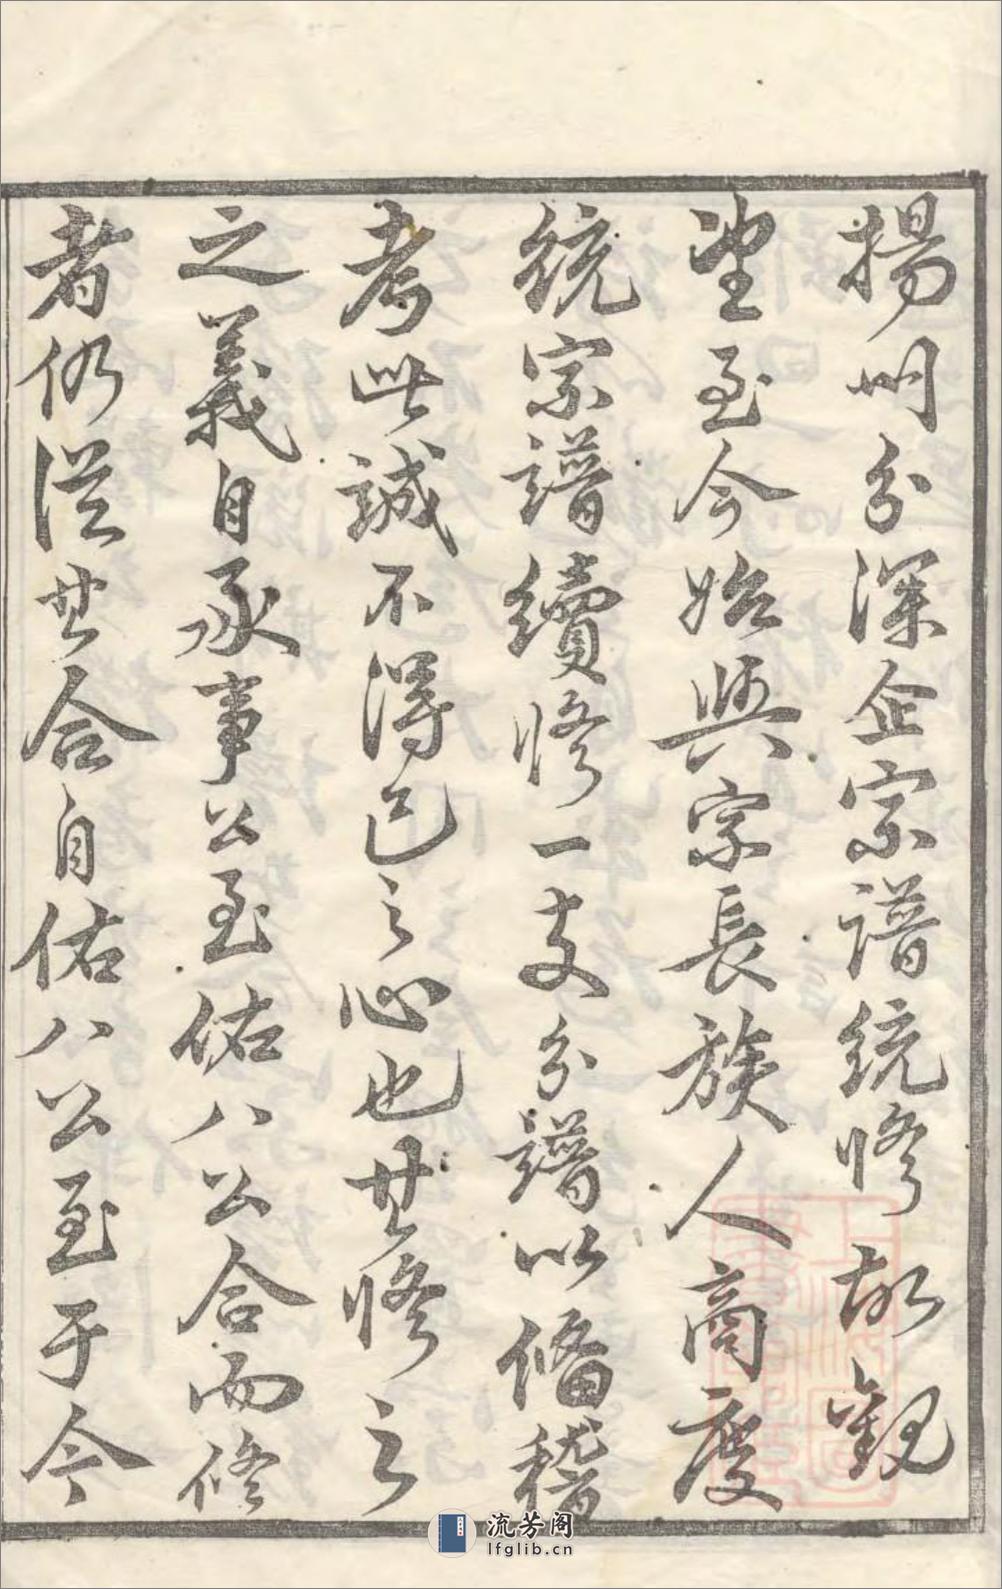 揚州分深企宗譜統修故觀
望至今始與宗長族人商度
統宗譜續修一支分譜以備稽
考此誠不得已之心也其修之
之義自承事公至佑八公合而修
者仍從其合自佑八公至于今
流芳阁
lfglib.cn